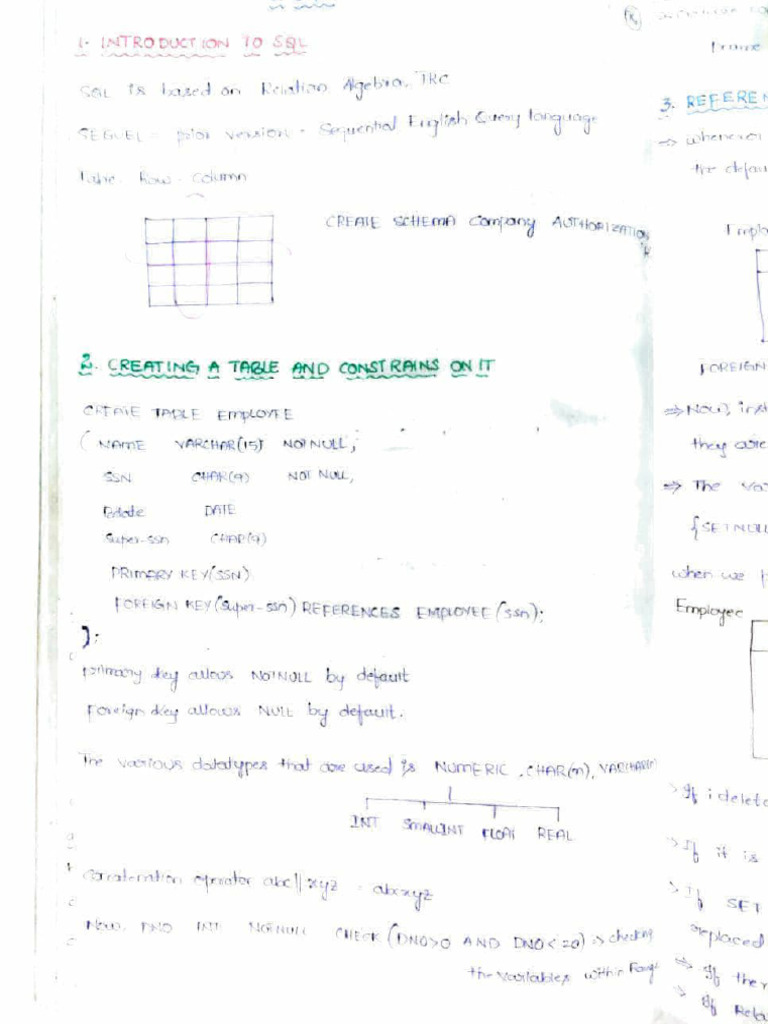 1. INTRODUCTION TO SQL
SQL is based on Relation Algebra, TRC
SEQUEL - prior version - Sequential English Query language
Table - Row - Column
CREATE SCHEMA Company AUTHORIZATION
2. CREATING A TABLE AND CONSTRAINS ON IT
CREATE TABLE EMPLOYEE
( NAME VARCHAR(15) NOT NULL,
SSN CHAR(9) NOT NULL,
Bdate DATE
Super-ssn CHAR(9)
PRIMARY KEY(SSN)
FOREIGN KEY(Super-ssn) REFERENCES EMPLOYEE(ssn);
);
primary key allows NOTNULL by default
Foreign key allows NULL by default.
The various datatypes that are used is NUMERIC, CHAR(n), VARCHAR(n)
INT SMALLINT FLOAT REAL
Concatenation operator abc||xyz = abcxyz
Now, DNO INT NOTNULL CHECK(DNO>0 AND DNO<=20) => checking
the variables within Range
3. REFEREN
=> whenever
the defau
Emplo
FOREIGN
=> Now, inst
they are
=> The va
{SETNULL
when we
Employee
> If i delete
> If it is
> If SET
replaced
=> If ther
> If Rela